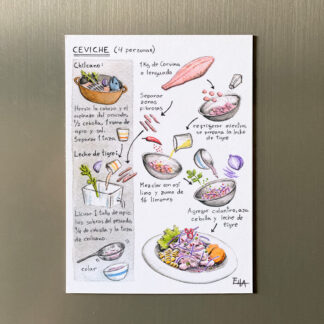 CEVICHE (4 personas)
Chilcano:
Hervir la cabeza y el
espinazo del pescado,
1/2 cebolla, 1 rama de
apio y sal.
Separar 1 taza.
Leche de tigre:
Licuar 1 talla de apio,
las sobras del pescado,
1/4 de cebolla y la taza
de chilcano.
colar
1 Kg de Corvina
o lenguado
Separar
zonas
fibrosas
refrigerar mientras
se prepara la leche
de tigre
Mezclar con ají
limo y zumo de
16 limones
Agregar cilantro,
cebolla y leche de
tigre